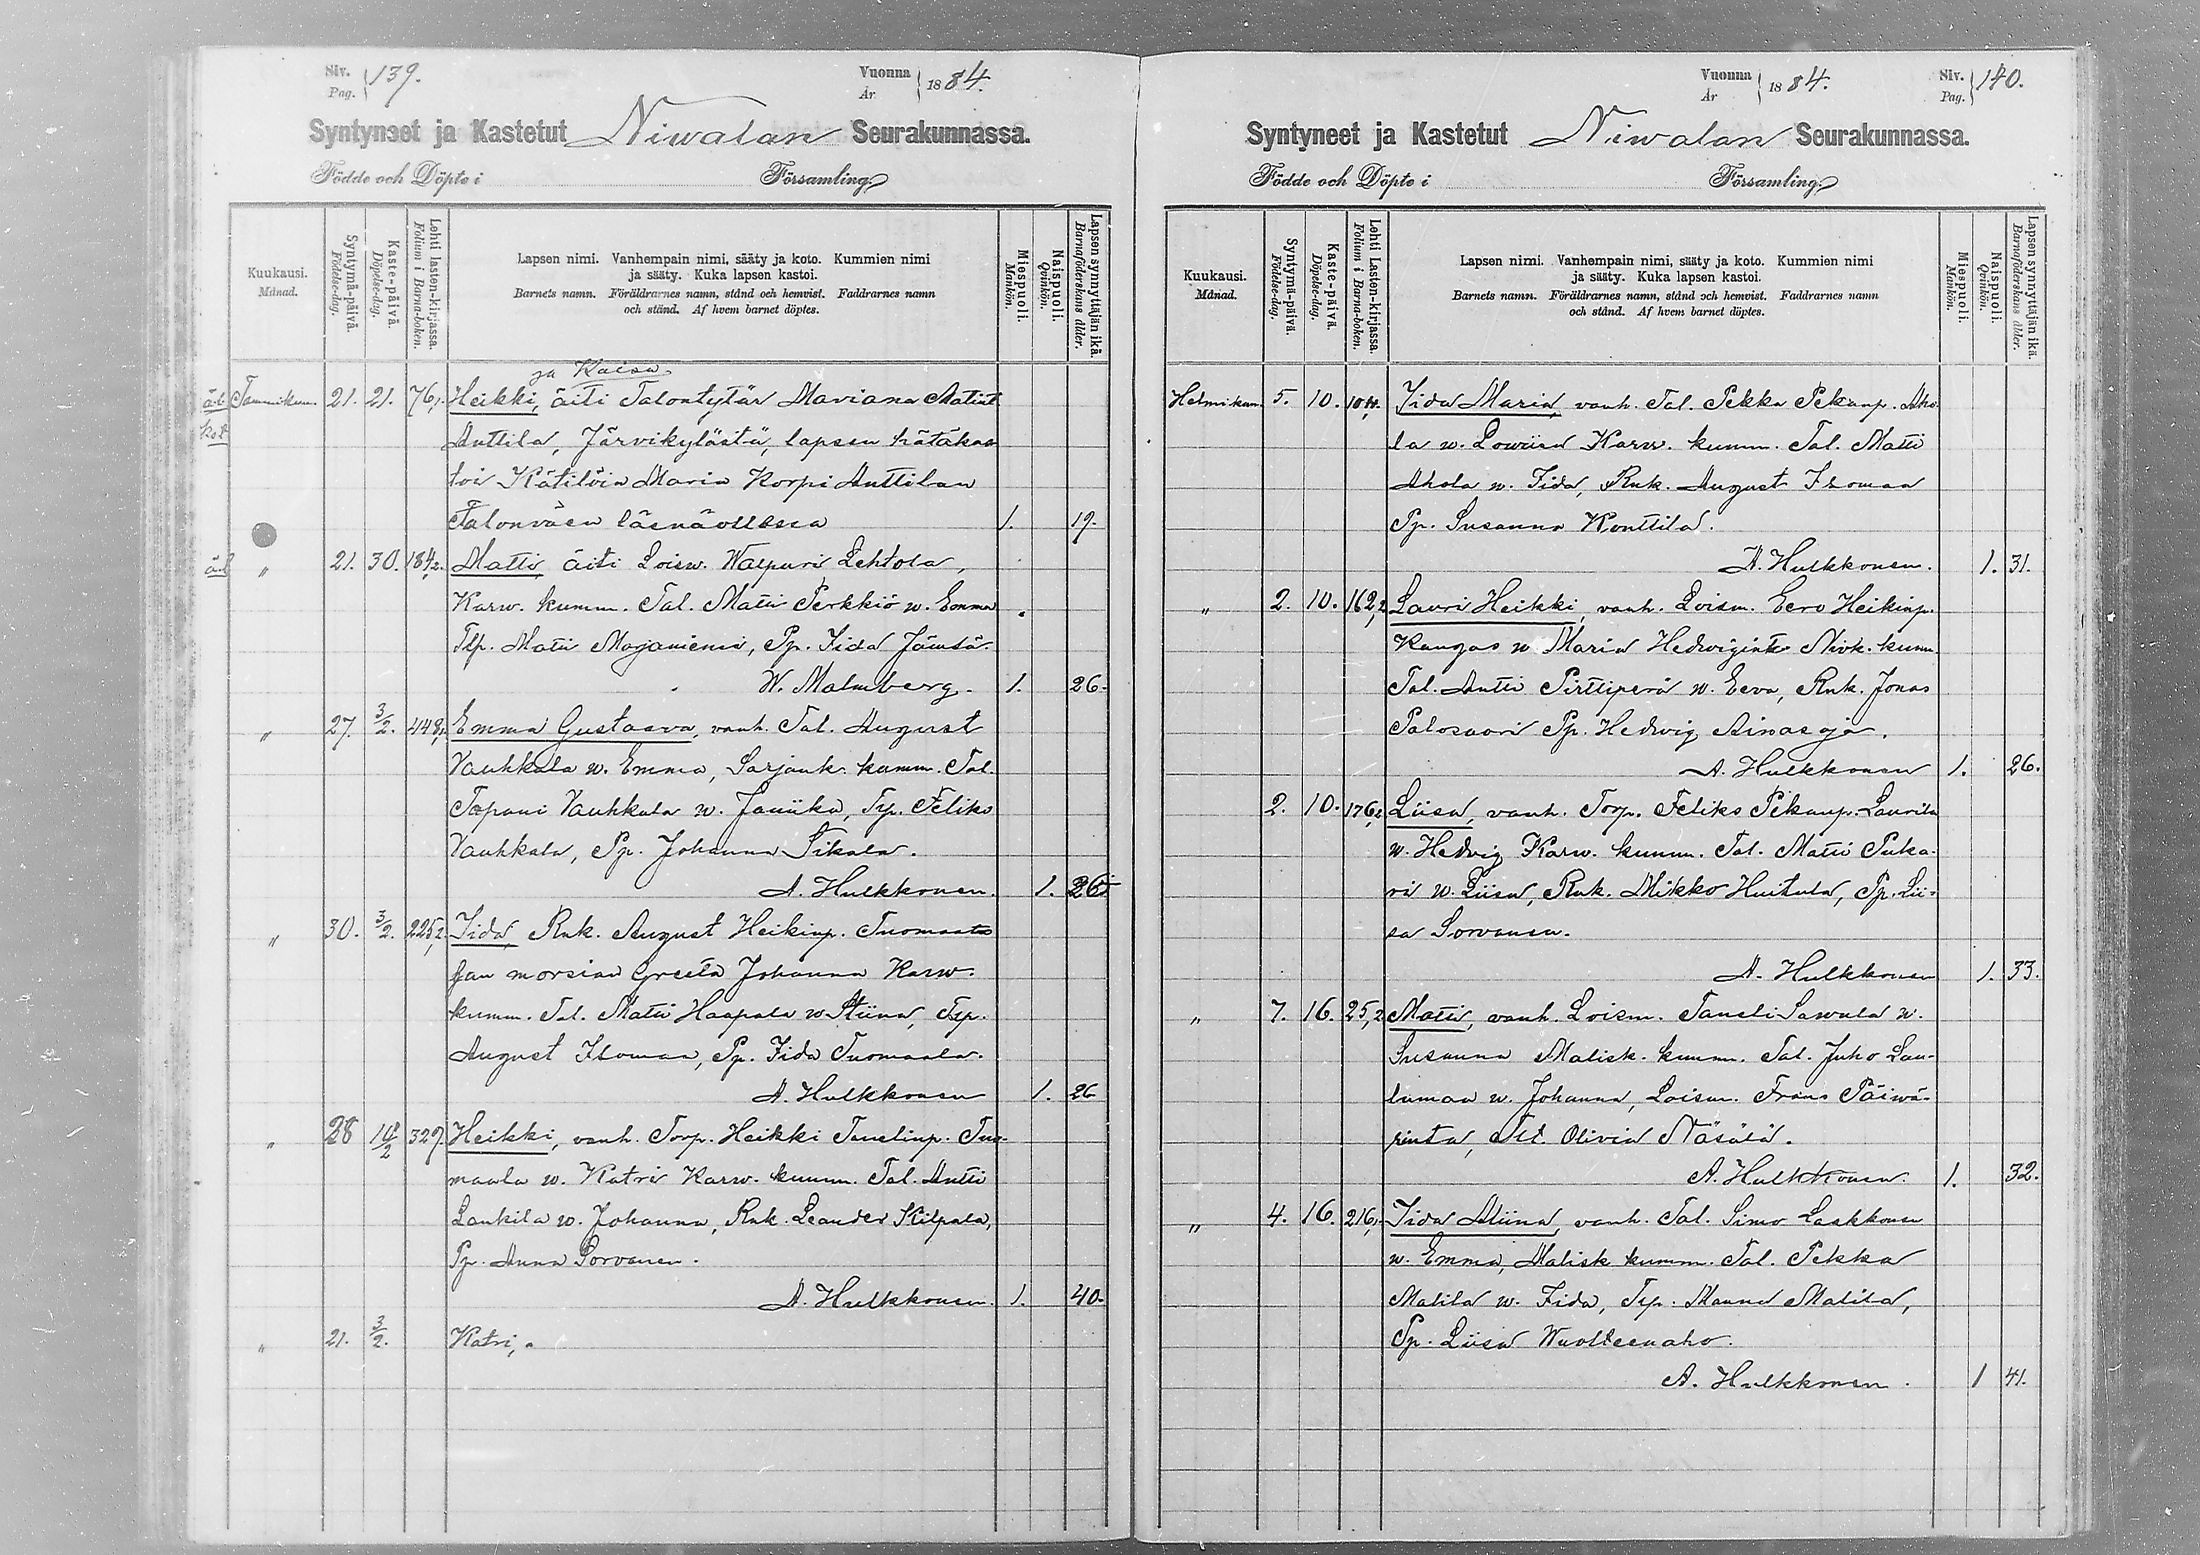 Siv.
Pag. 139.
Vuonna
År 1884.
Syntyneet ja Kastetut Niwalan Seurakunnassa.
Födde och Döpte i Församling
Kuukausi.
Månad.
Syntymä-päivä.
Födelse-dag.
Kaste-päivä.
Döpelse-dag.
Lehti lasten-kirjassa.
Folium i Barna-boken.
Lapsen nimi. Vanhempain nimi, sääty ja koto. Kummien nimi
ja sääty. Kuka lapsen kastoi.
Barnets namn. Föräldrarnes namn, stånd och hemvist. Faddrarnes namn
och stånd. Af hvem barnet döptes.
Miespuoli.
Mankön.
Naispuoli.
Qvinkön.
Lapsen synnyttäjän ikä.
Barnaföderskans ålder.
ja Kaisa
ä.l. Tammikuu. 21. 21. 76, Heikki, äiti Talontytär Mariana Matint
kot Anttila, Järvikylästä, lapsen hätäkas
toi Kätilöin Maria Korpi Anttilan
Talonväen läsnäollessa 1. 19.
ä.l. " 21. 30. 184,2. Matti, äiti Loisw. Walpuri Lehtola,
Karw. kumm. Tal. Matti Perkkiö w. Emma
Tlp. Matti Mojaniemi, Pp. Iida Jämsä.
W. Malmberg. 1. 26.
" 27. 3/2. 448, Emma Gustaava, vanh. Tal. August
Vauhkala w. Emma, Sarjank. kumm. Tal.
Tapani Vauhkala w. Janiika, Tp. Feliks
Vauhkala, Pp. Johanna Sikala.
A. Hulkkonen. 1. 26
" 30. 3/2. 225,2. Iida, Rnk. August Heikinp. Tuomaala
jan morsian Greeta Johanna Karw.
kumm. Tal. Matti Haapala w. Stiina, Tp.
August Isomaa, Pp. Iida Tuomaala.
A. Hulkkonen 1. 26
" 28 10/2 329. Heikki, vanh. Torp. Heikki Tanelinp. Tuo-
maala w. Katri Karw. kumm. Tal. Antti
Lankila w. Johanna, Rnk. Leander Kilpala,
Pp. Anna Sorvanen.
A. Hulkkonen. 1. 40.
" 21. 3/2. Katri,
Vuonna
År 1884.
Siv.
Pag. 140.
Syntyneet ja Kastetut Niwalan Seurakunnassa.
Födde och Döpte i Församling
Kuukausi.
Månad.
Syntymä-päivä.
Födelse-dag.
Kaste-päivä.
Döpelse-dag.
Lehti Lasten-kirjassa.
Folium i Barna-boken.
Lapsen nimi. Vanhempain nimi, sääty ja koto. Kummien nimi
ja sääty. Kuka lapsen kastoi.
Barnets namn. Föräldrarnes namn, stånd och hemvist. Faddrarnes namn
och stånd. Af hvem barnet döptes.
Miespuoli.
Mankön.
Naispuoli.
Qvinkön.
Lapsen synnyttäjän ikä.
Barnaföderskans ålder.
Helmikuu. 5. 10. Iida Maria, vanh. Tal. Pekka Pekanp. Aho-
la w. Lowiisa Karw. kumm. Tal. Matti
Ahola w. Iida, Rnk. August Isomaa
Pp. Susanna Konttila.
A. Hulkkonen. 1. 31.
" 2. 10. 162,2 Lauri Heikki, vanh. Loism. Eero Heikinp.
Kangas w. Maria Hedwigint. Nivk. kumm.
Tal. Antti Pirttiperä w. Eeva, Rnk. Jonas
Palosaari Pp. Hedvig Ainasoja.
A. Hulkkonen 1. 26.
2. 10. 176,2 Liisa, vanh. Torp. Feliks Pekanp. Laurila
w. Hedvig Karw. kumm. Tal. Matti Puka-
ri w. Liisa, Rnk. Mikko Huitula, Pp. Lii-
sa Sorvanen.
A. Hulkkonen 1. 33.
" 7. 16. 25,2 Matti, vanh. Loism. Taneli Sawula w.
Susanna Malisk. kumm. Tal. Juho Lau-
lumaa w. Johanna, Loism. Frans Päiwä-
rinta, Tlt. Olivia Näsälä.
A. Hulkkonen. 1. 32.
" 4. 16. 216, Iida Miina, vanh. Tal. Simo Laakkonen
w. Emma, Malisk kumm. Tal. Pekka
Matila w. Iida, Tp. Manne Matila,
Pp. Liisa Wuolteenaho.
A. Hulkkonen. 1 41.